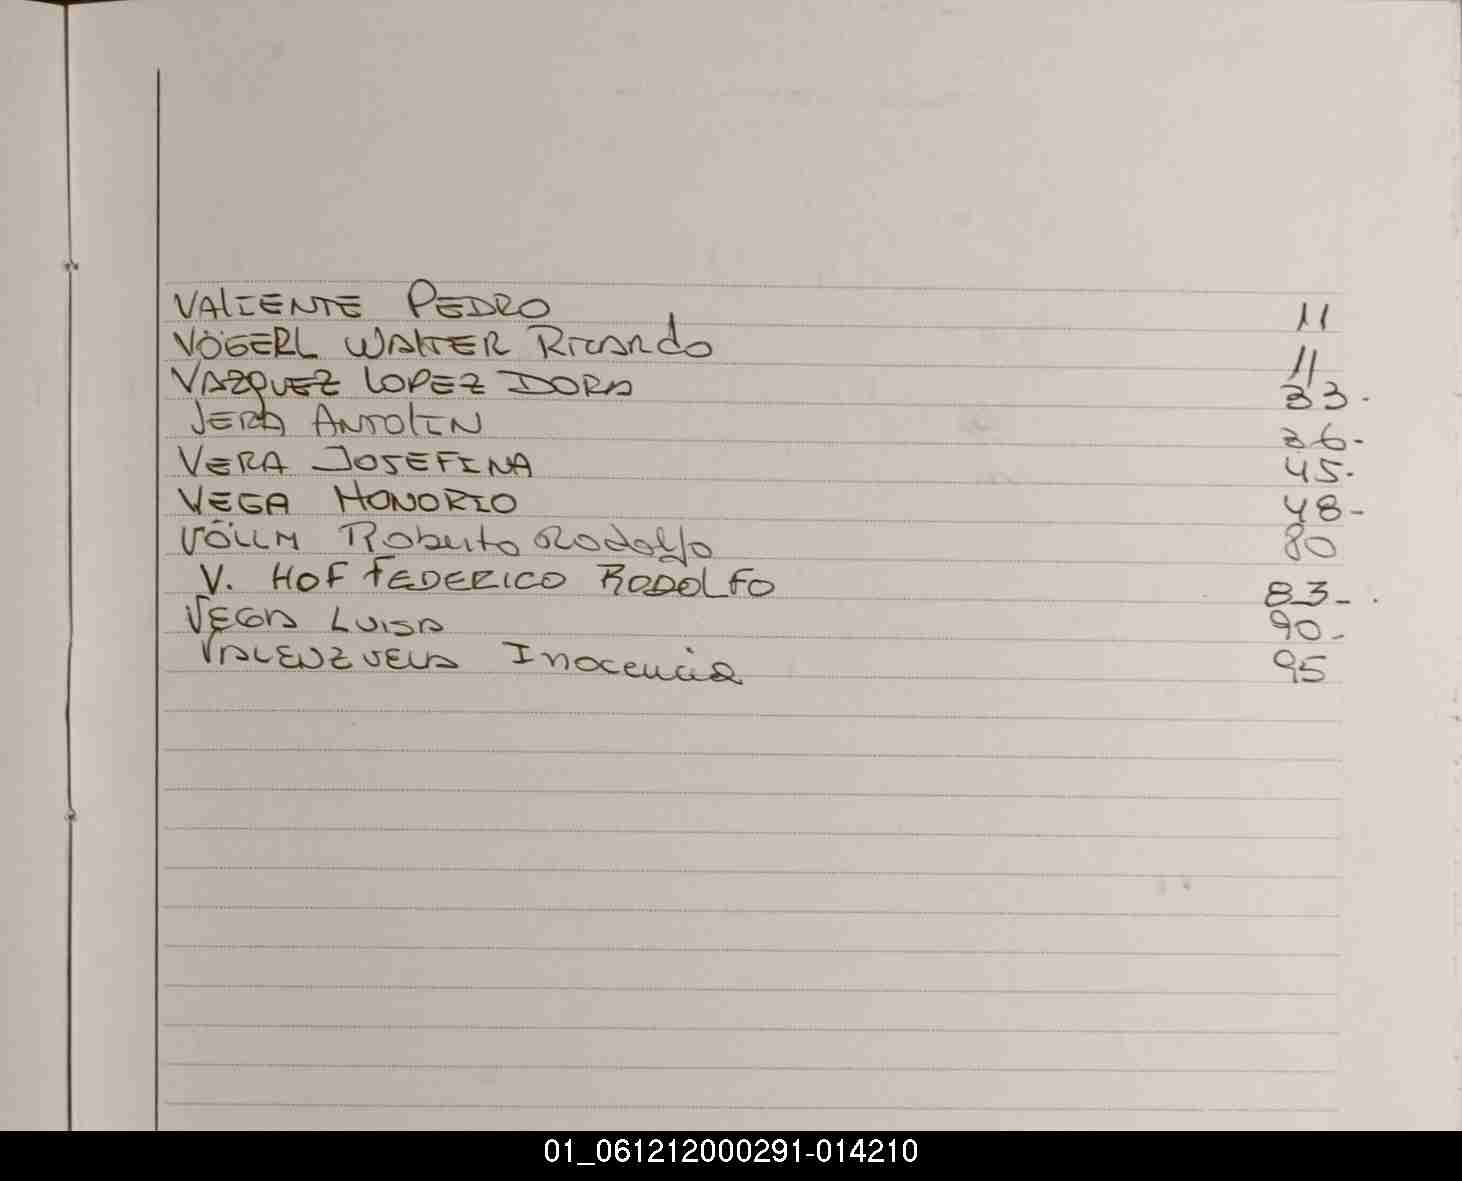 VALIENTE PEDRO 11
VÖGERL WALTER RICARdo 11
VAZQUEZ LOPEZ DORA 33.
VERA ANTOLIN 36.
VERA JOSEFINA 45.
VEGA HONORIO 48-
VÖLLM Roberto Rodolfo 80
V. HOF FEDERICO RODOLFO 83-.
VEGA LUISA 90-
VALENZUELA Inocencia 95
01_061212000291-014210